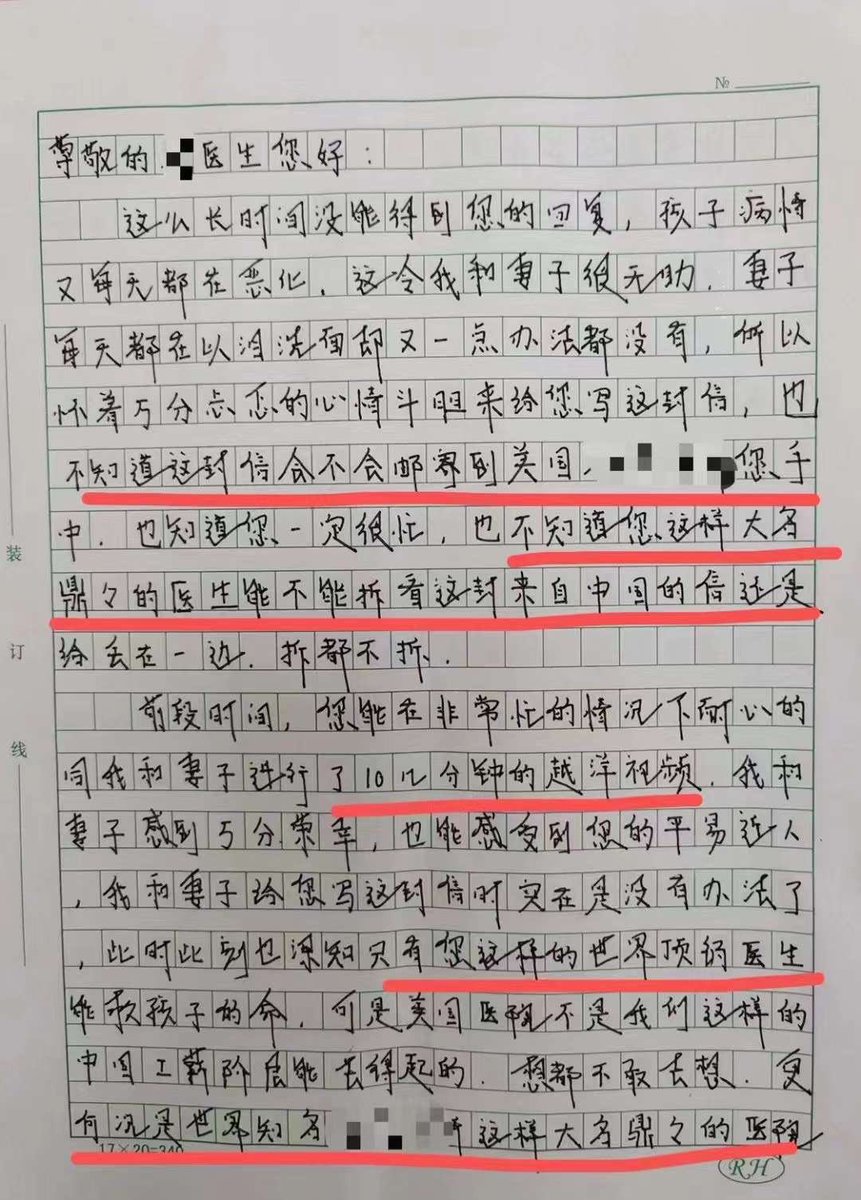 №
尊敬的医生您好：
这么长时间没能得到您的回复，孩子病情
又每天都在恶化，这令我和妻子很无助，妻子
每天都在以泪洗面却又一点办法都没有，所以
怀着万分忐忑的心情斗胆来给您写这封信，也
不知道这封信会不会邮寄到美国，您手
中，也知道您一定很忙，也不知道您这样大名
鼎々的医生能不能拆看这封来自中国的信还是
给丢在一边，拆都不拆．
前段时间，您能在非常忙的情况下耐心的
同我和妻子进行了10几分钟的越洋视频，我和
妻子感到万分荣幸，也能感受到您的平易近人
，我和妻子给您写这封信时实在是没有办法了
，此时此刻也深知只有您这样的世界顶级医生
能救孩子的命，可是美国医院不是我们这样的
中国工薪阶层能去得起的．想都不敢去想．更
何况是世界知名这样大名鼎々的医院
17×20=340
RH
装
订
线